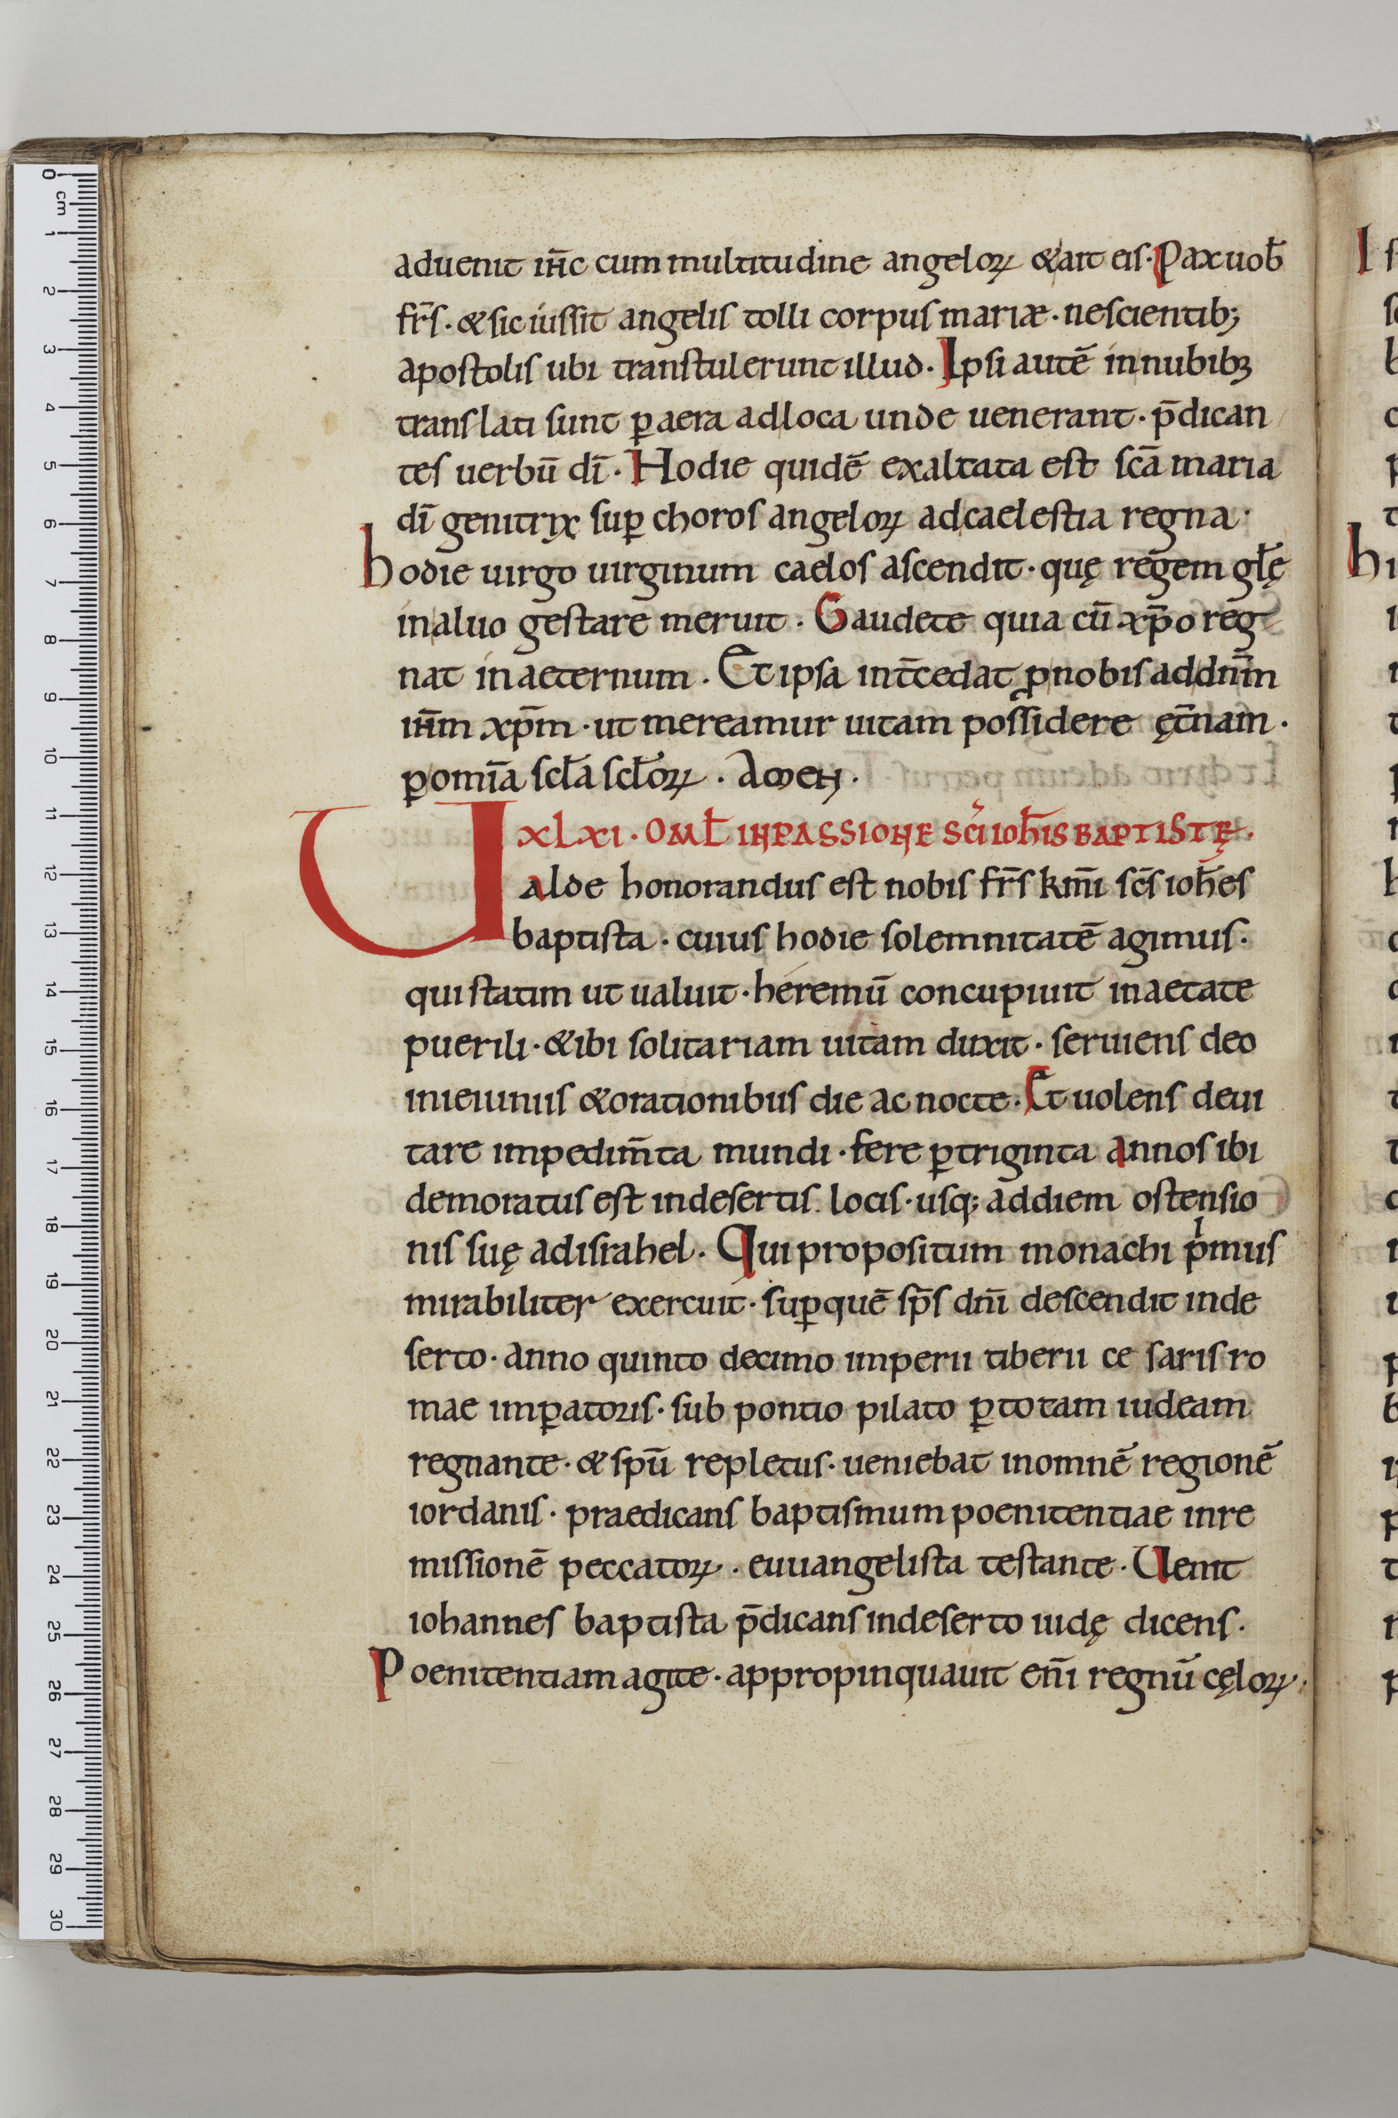 aduenit ih̄c cum multitudine angeloꝝ & ait eis· Pax uob̄
fr̄s · & sic iussit angelis tolli corpus mariæ · nescientib;
apostolis ubi transtulerunt illud · Ipsi autē in nubibꝫ
translati sunt ꝑ aera ad loca unde uenerant · p̄dican
tes uerbū dī · Hodie quidē exaltata est sc̄a maria
dī genitrix sup̱ choros angeloꝝ ad caelestia regna ·
hodie uirgo uirginum caelos ascendit · quę regem gl̄ę
in aluo gestare meruit · Gaudete quia cū xp̄o reg
nat in aeternum · Et ipsa int̄cedat ꝓ nobis ad dn̄m
ih̄m xp̄m · ut mereamur uitam possidere ęt̄nam ·
ꝑ om̄ia scl̄a scl̄oꝝ · Amen ·
XLXI · OML̄ IN PASSIONE SC̄I IOH̄IS BAPTISTĘ ·
Ualde honorandus est nobis fr̄s km̄i sc̄s ioh̄es
baptista · cuius hodie solemnitatē agimus ·
qui statim ut ualuit · heremū concupiuit in aetate
puerili · & ibi solitariam uitam duxit · seruiens deo
in ieiuniis & orationibus die ac nocte · Et uolens deui
tare impedim̄ta mundi · fere ꝑ triginta annos ibi
demoratus est in desertis locis · usq; ad diem ostensio
nis suę ad israhel · Qui propositum monachi pͥmus
mirabiliter exercuit · suꝑ quē sp̄s dn̄i descendit in de
serto · anno quinto decimo imperii tiberii ce saris ro
mae imꝑatoris · sub pontio pilato ꝑ totam iudeam
regnante · & spū repletus · ueniebat in omnē regionē
iordanis · praedicans baptismum poenitentiae in re
missionē peccatoꝝ · euuangelista testante · Uenit
iohannes baptista p̄dicans in deserto iudę dicens ·
Poenitentiam agite · appropinquauit en̄i regnū cęloꝝ ·